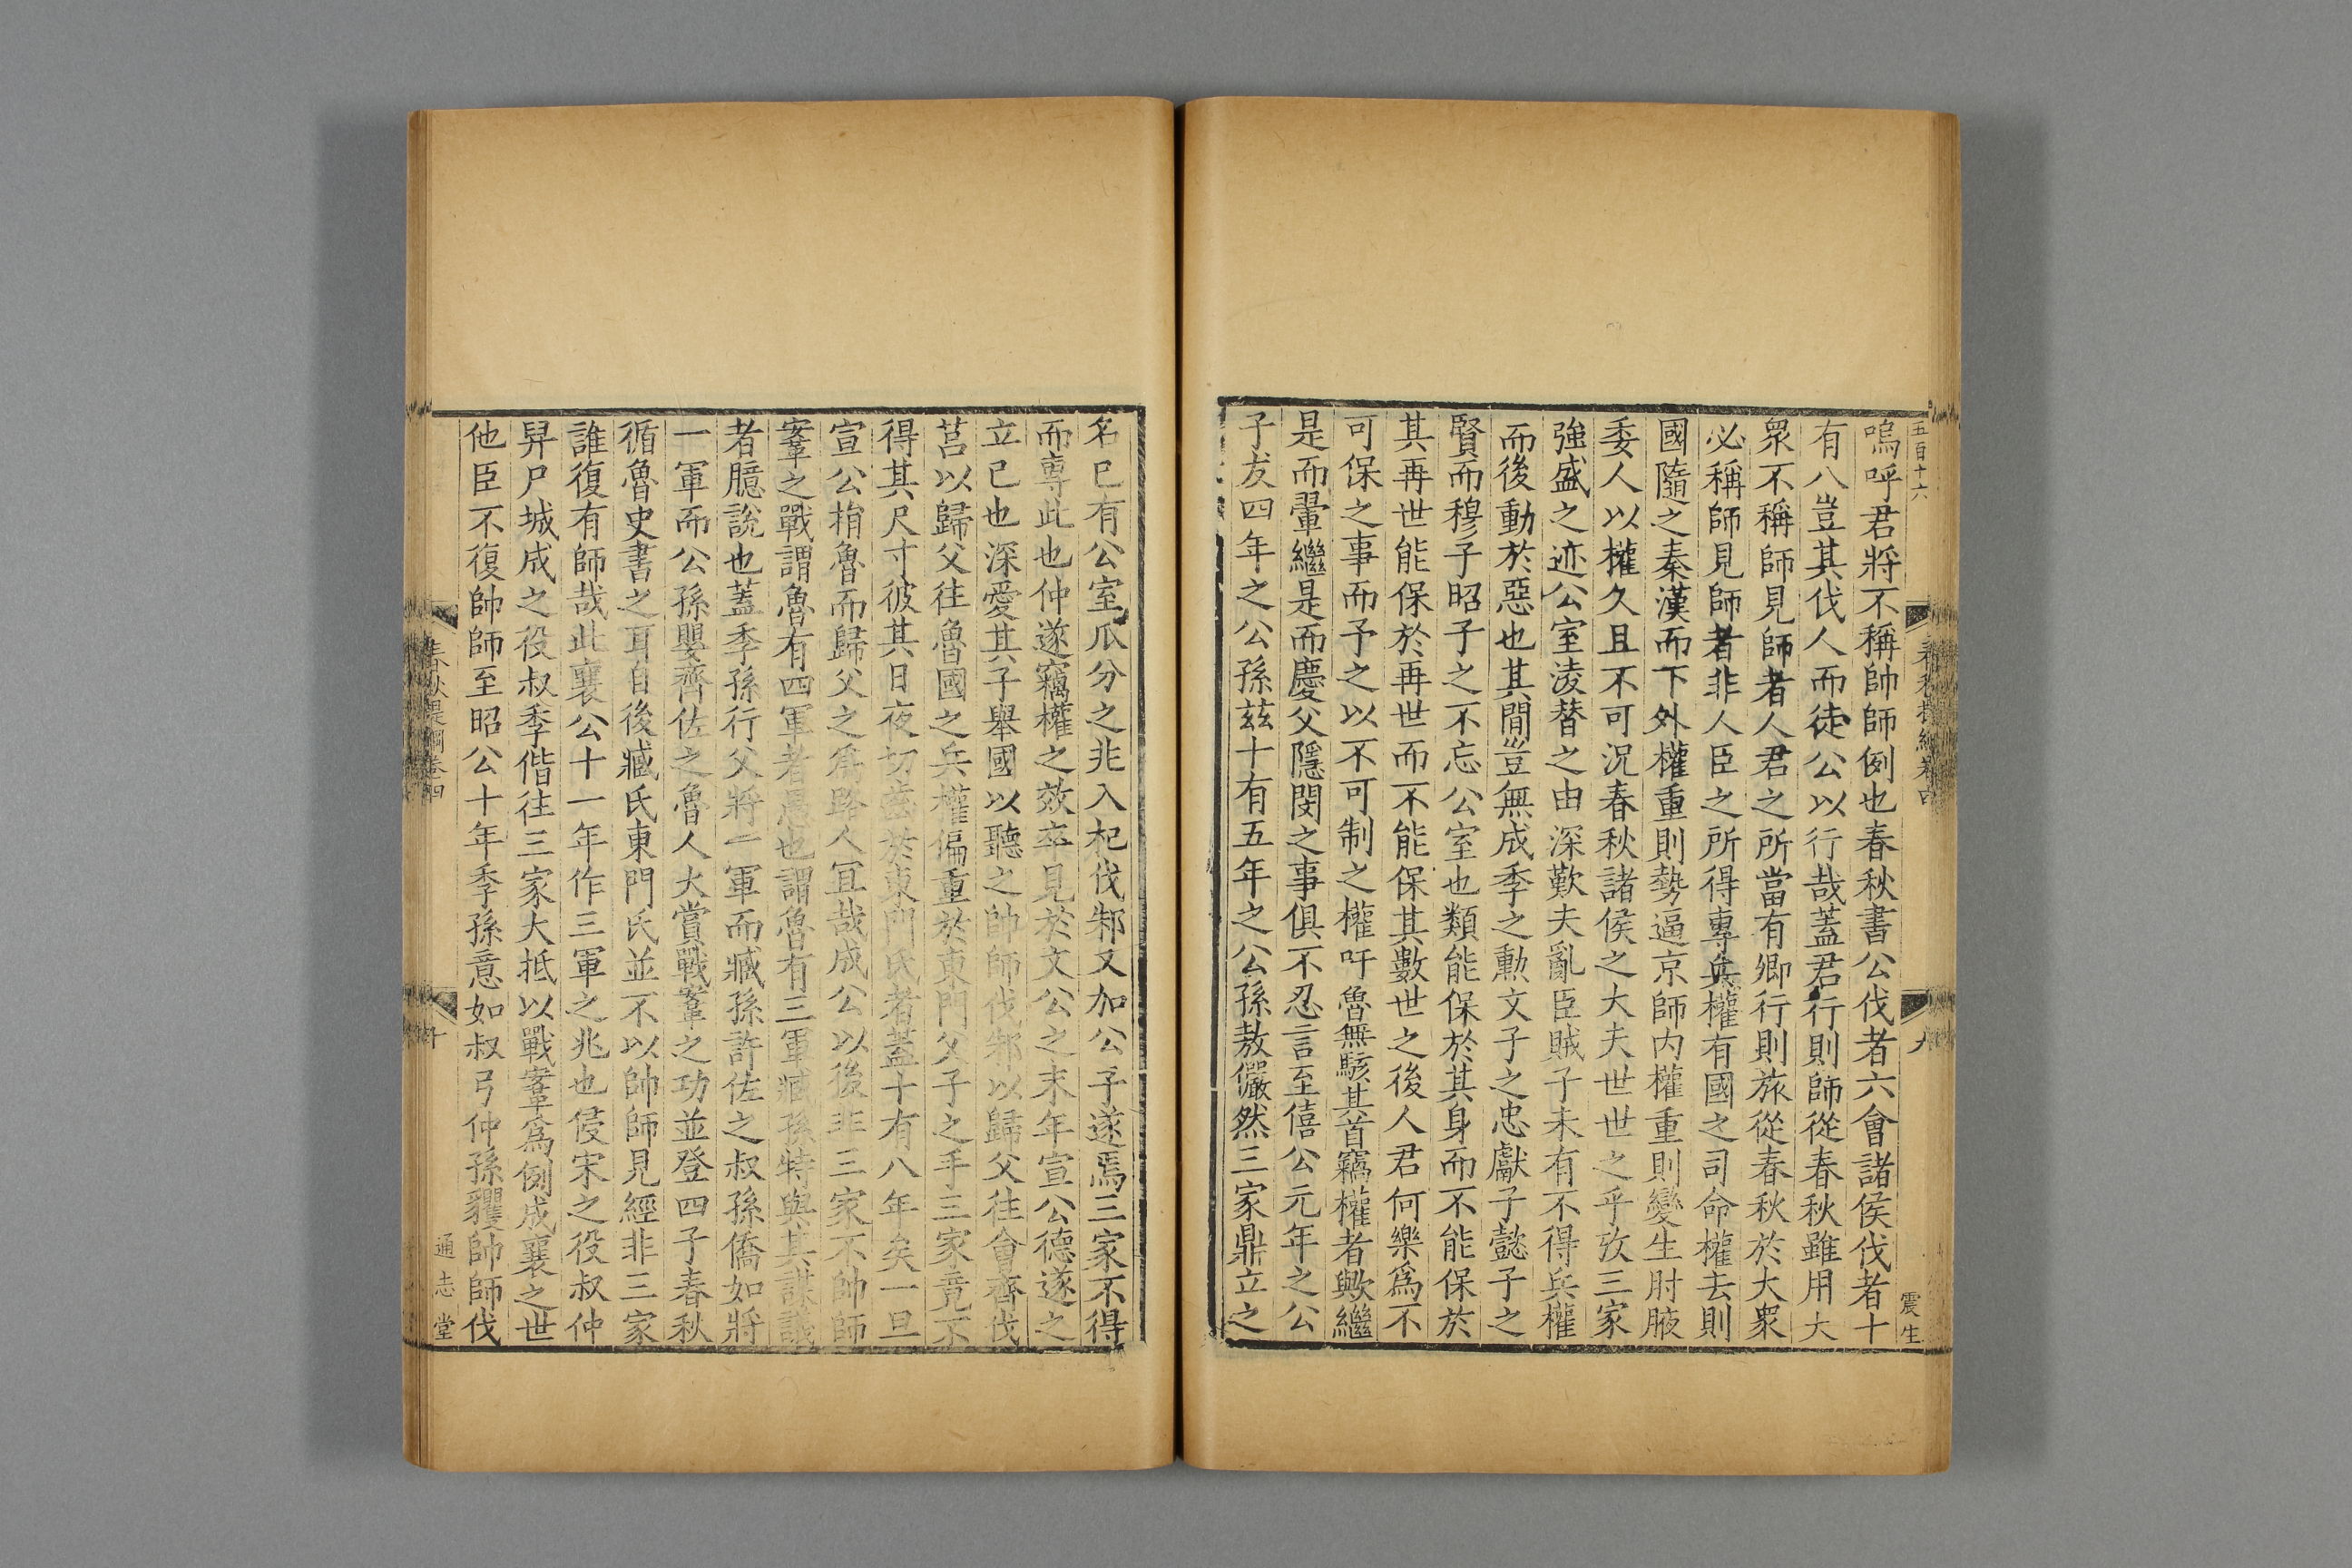 五百十六
春秋提綱卷四
九
震生
嗚呼君將不稱帥師例也春秋書公伐者六會諸侯伐者十
有八豈其伐人而徒公以行哉蓋君行則師從春秋雖用大
衆不稱師見師者人君之所當有卿行則旅從春秋於大衆
必稱師見師者非人臣之所得專兵權有國之司命權去則
國隨之秦漢而下外權重則勢逼京師内權重則變生肘腋
委人以權久且不可況春秋諸侯之大夫世世之乎攷三家
強盛之迹公室淩替之由深歎夫亂臣賊子未有不得兵權
而後動於惡也其間豈無成季之勲文子之忠獻子懿子之
賢而穆子昭子之不忘公室也類能保於其身而不能保於
其再世能保於再世而不能保其數世之後人君何樂爲不
可保之事而予之以不可制之權吁魯無駭其首竊權者歟繼
是而翬繼是而慶父隱閔之事俱不忍言至僖公元年之公
子友四年之公孫茲十有五年之公孫敖儼然三家鼎立之
名已有公室瓜分之非入杞伐邾又加公子遂焉三家不得
而專此也仲遂竊權之效卒見於文公之末年宣公德遂之
立已也深愛其子舉國以聽之帥師伐邾以歸父往會齊伐
莒以歸父往魯國之兵權偏重於東門父子之手三家竟不
得其尺寸彼其日夜切齒於東門氏者蓋十有八年矣一旦
宣公捐魯而歸父之爲路人宜哉成公以後非三家不帥師
鞌之戰謂魯有四軍者愚也謂魯有三軍臧孫特與其謀議
者臆說也蓋季孫行父將一軍而臧孫許佐之叔孫僑如將
一軍而公孫嬰齊佐之魯人大賞戰鞌之功並登四子春秋
循魯史書之耳自後臧氏東門氏並不以帥師見經非三家
誰復有師哉此襄公十一年作三軍之兆也侵宋之役叔仲
舁尸城成之役叔季偕往三家大抵以戰鞌爲例成襄之世
他臣不復帥師至昭公十年季孫意如叔弓仲孫貜帥師伐
春秋提綱卷四
十
通志堂